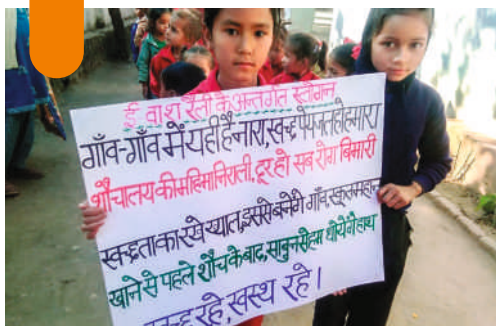 वाश रैली के अन्तर्गत स्लोगन
गाँव-गाँव में यही है नारा, स्वच्छ पेयजल हो हमारा
शौचालय की महिमा निराली, दूर हो सब रोग बिमारी
स्वच्छता का रखे ख्याल, इससे बनेंगे गाँव, स्कूल महान
खाने से पहले शौच के बाद, साबुन से हम धोयेंगे हाथ
रहे, स्वस्थ रहे।